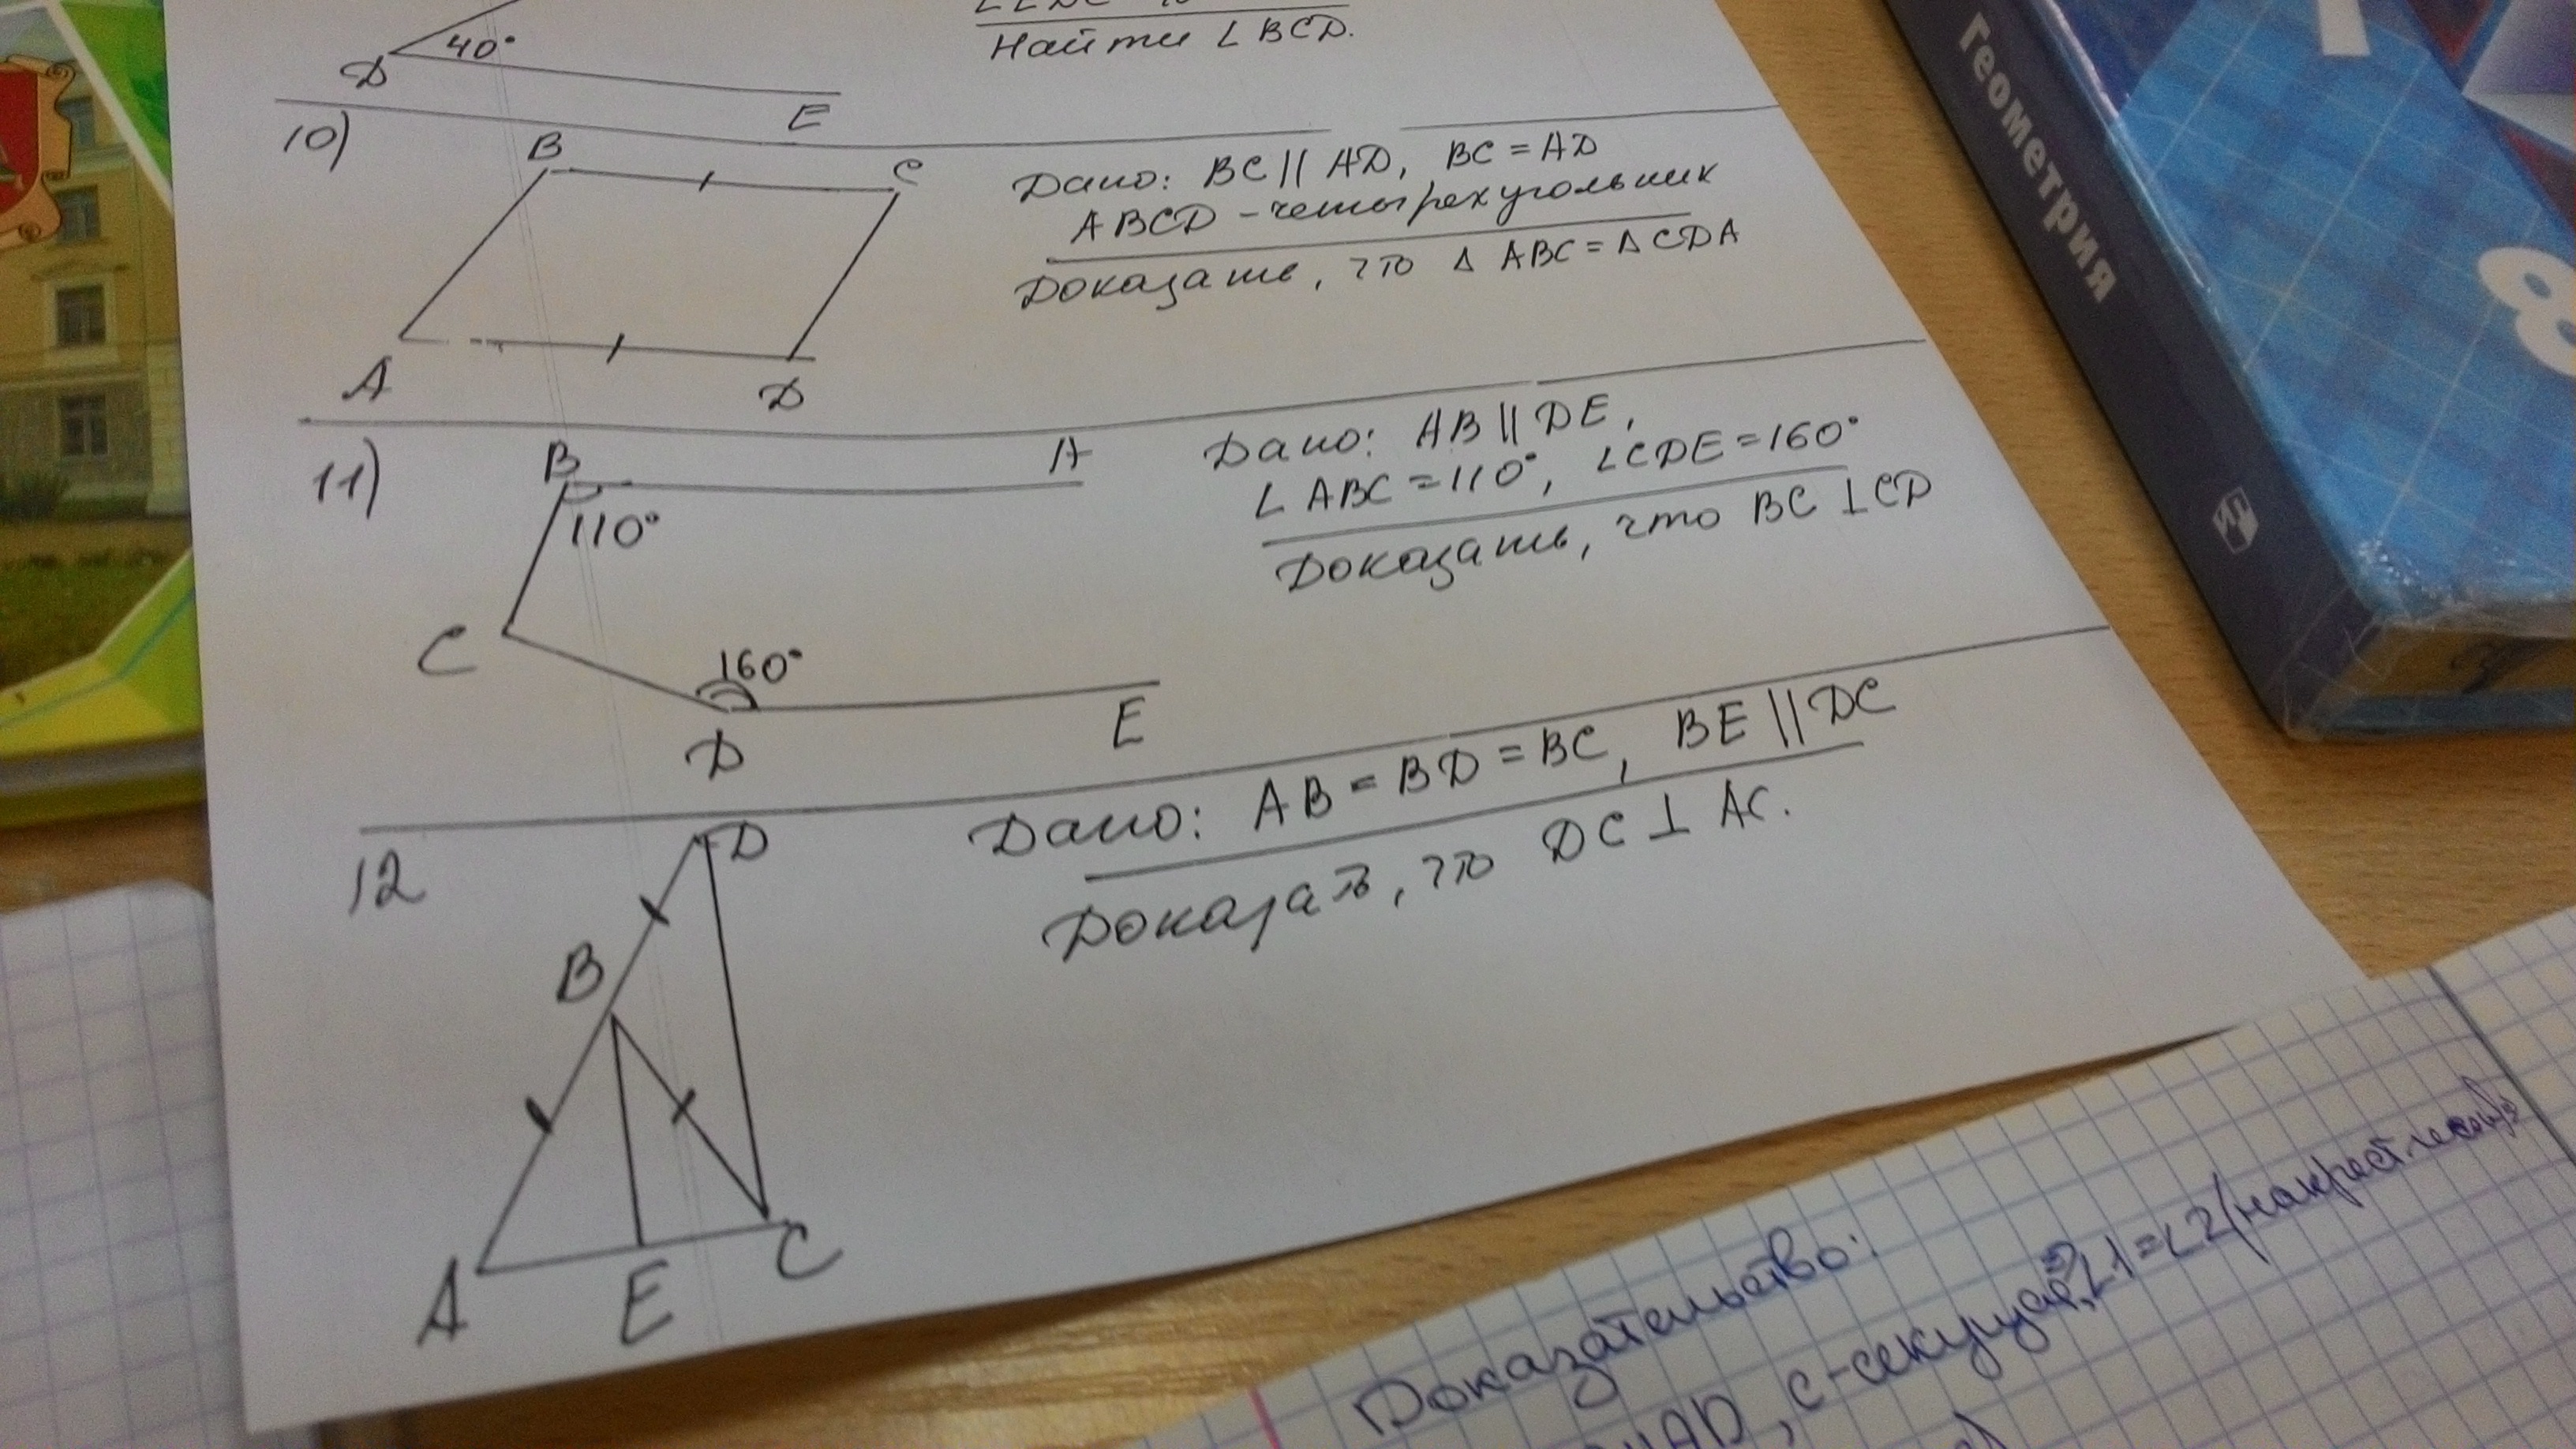 Найти ∠BCD.
40°
D
E
10)
B
C
A
D
Дано: BC || AD, BC = AD
ABCD - четырехугольник
Доказать, что Δ ABC = Δ CDA
11)
B
A
110°
C
160°
D
E
Дано: AB || DE,
∠ABC = 110°, ∠CDE = 160°
Доказать, что BC ⊥ CD
12
D
B
A
E
C
Дано: AB = BD = BC, BE || DC
Доказать, что DC ⊥ AC.
Геометрия
8
Доказательство:
AD, с-секущая, ∠1 = ∠2 (накрест